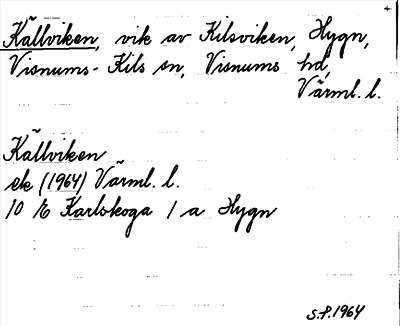 Källviken, vik av Kilsviken, Hygn,
Visnums-Kils sn, Visnums hd,
Värml. l.
Källviken
ek (1964) Värml. l.
10 E Karlskoga 1 a Hygn
S.P. 1964